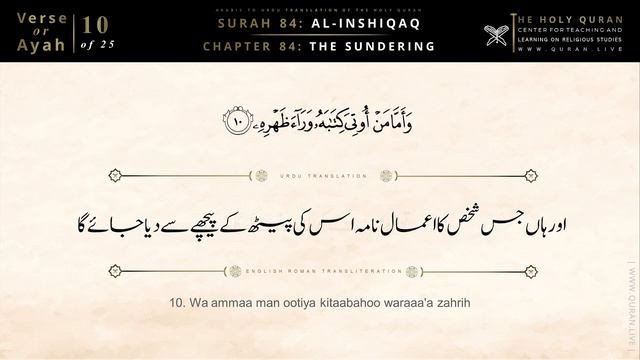 ARABIC TO URDU TRANSLATION OF THE HOLY QURAN
Verse or Ayah
10 of 25
SURAH 84: AL-INSHIQAQ
CHAPTER 84: THE SUNDERING
THE HOLY QURAN
CENTER FOR TEACHING AND
LEARNING ON RELIGIOUS STUDIES
WWW.QURAN.LIVE
وَأَمَّا مَنْ أُوتِيَ كِتَٰبَهُۥ وَرَآءَ ظَهْرِهِۦ ١٠
URDU TRANSLATION
اور ہاں جس شخص کا اعمال نامہ اس کی پیٹھ کے پیچھے سے دیا جائے گا
ENGLISH ROMAN TRANSLITERATION
10. Wa ammaa man ootiya kitaabahoo waraaa'a zahrih
| WWW.QURAN.LIVE |